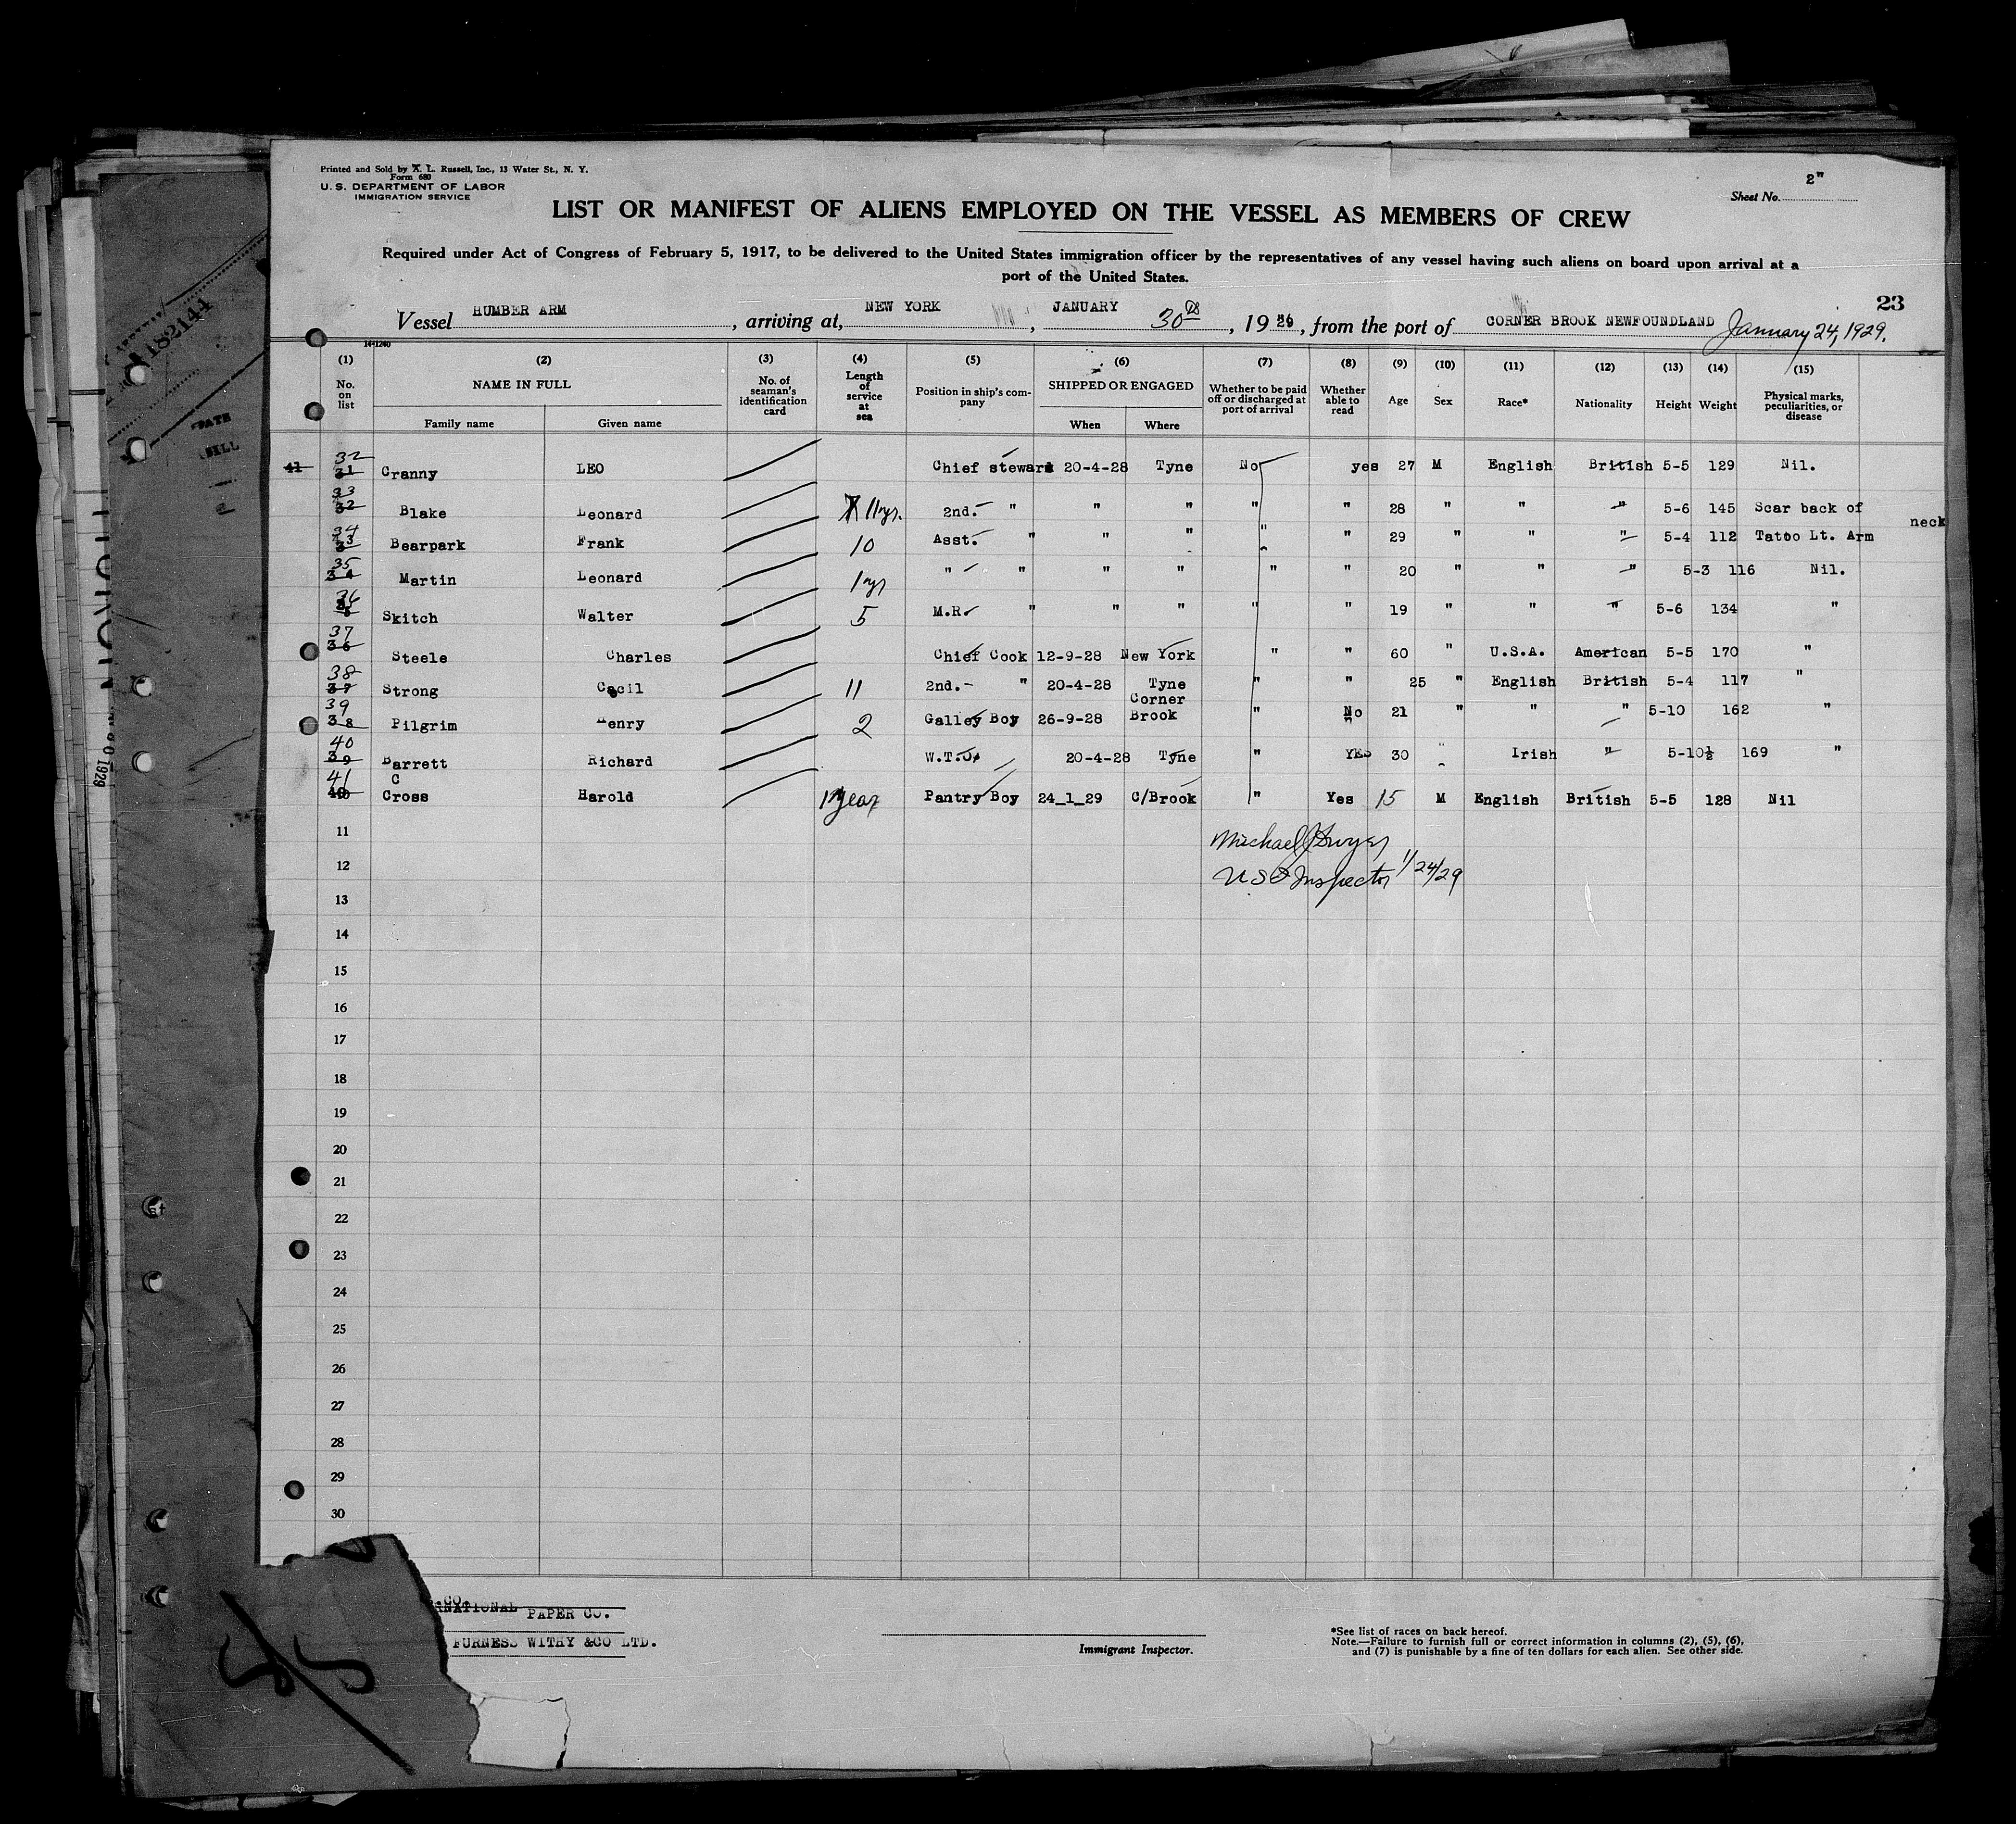 Printed and Sold by X. L. Russell, Inc., 13 Water St., N. Y.
Form 680
U. S. DEPARTMENT OF LABOR
IMMIGRATION SERVICE
Sheet No. 2"
LIST OR MANIFEST OF ALIENS EMPLOYED ON THE VESSEL AS MEMBERS OF CREW
Required under Act of Congress of February 5, 1917, to be delivered to the United States immigration officer by the representatives of any vessel having such aliens on board upon arrival at a
port of the United States.
23
Vessel HUMBER ARM, arriving at, NEW YORK, JANUARY 30th, 19, from the port of CORNER BROOK NEWFOUNDLAND January 24, 1929.
14-1240
(1) (2) (3) (4) (5) (6) (7) (8) (9) (10) (11) (12) (13) (14) (15)
No. on list NAME IN FULL No. of seaman's identification card Length of service at sea Position in ship's company SHIPPED OR ENGAGED Whether to be paid off or discharged at port of arrival Whether able to read Age Sex Race* Nationality Height Weight Physical marks, peculiarities, or disease
Family name Given name When Where
41 32 31 Cranny LEO Chief steward 20-4-28 Tyne No yes 27 M English British 5-5 129 Nil.
33 32 Blake Leonard 11yr. 2nd. " " " " " 28 " " " 5-6 145 Scar back of neck
34 33 Bearpark Frank 10 Asst. " " " " " 29 " " " 5-4 112 Tatoo Lt. Arm
35 34 Martin Leonard 1yr " " " " " " 20 " " " 5-3 116 Nil.
36 Skitch Walter 5 M.R. " " " " " 19 " " " 5-6 134 "
37 36 Steele Charles Chief Cook 12-9-28 New York " " 60 " U.S.A. American 5-5 170 "
38 37 Strong Cecil 11 2nd. " 20-4-28 Tyne " " 25 " English British 5-4 117 "
39 38 Pilgrim Henry 2 Galley Boy 26-9-28 Corner Brook " No 21 " " " 5-10 162 "
40 39 Barrett Richard W.T.O. 20-4-28 Tyne " YES 30 " Irish " 5-10½ 169 "
C
41 40 Cross Harold 1 year Pantry Boy 24_1_29 C/Brook " Yes 15 M English British 5-5 128 Nil
11
Michael J Dwyer
12
U S I Inspector 1/24/29
13
14
15
16
17
18
19
20
21
22
23
24
25
26
27
28
29
30
.CO.
RNATIONAL PAPER CO.
FURNESS WITHY &CO LTD.
Immigrant Inspector.
*See list of races on back hereof.
Note.—Failure to furnish full or correct information in columns (2), (5), (6),
and (7) is punishable by a fine of ten dollars for each alien. See other side.
182144
1929
st